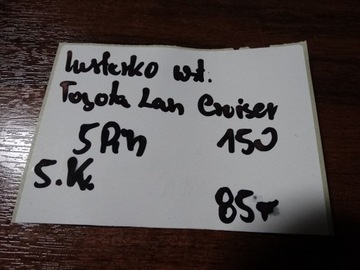 lusterko wst.
Toyota Lan Cruiser
5 Pin 150
S.K.
85